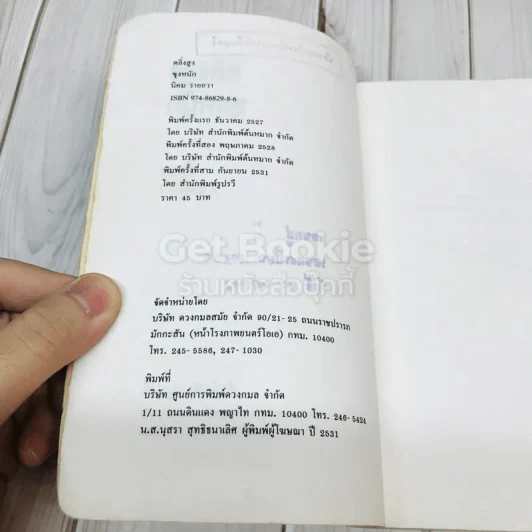 ตลิ่งสูง
ซุงหนัก
นิคม รายยวา
ISBN 974-86829-8-6
พิมพ์ครั้งแรก ธันวาคม 2527
โดย บริษัท สำนักพิมพ์ต้นหมาก จำกัด
พิมพ์ครั้งที่สอง พฤษภาคม 2528
โดย บริษัท สำนักพิมพ์ต้นหมาก จำกัด
พิมพ์ครั้งที่สาม กันยายน 2531
โดย สำนักพิมพ์รูปรวี
ราคา 45 บาท
Get Bookie
ร้านหนังสือบุ๊กกี้
จัดจำหน่ายโดย
บริษัท ดวงกมลสมัย จำกัด 90/21-25 ถนนราชปรารภ
มักกะสัน (หน้าโรงภาพยนตร์โอเอ) กทม. 10400
โทร. 245-5586, 247-1030
พิมพ์ที่
บริษัท ศูนย์การพิมพ์ดวงกมล จำกัด
1/11 ถนนดินแดง พญาไท กทม. 10400 โทร. 246-5424
น.ส.นุสรา สุทธิธนาเลิศ ผู้พิมพ์ผู้โฆษณา ปี 2531